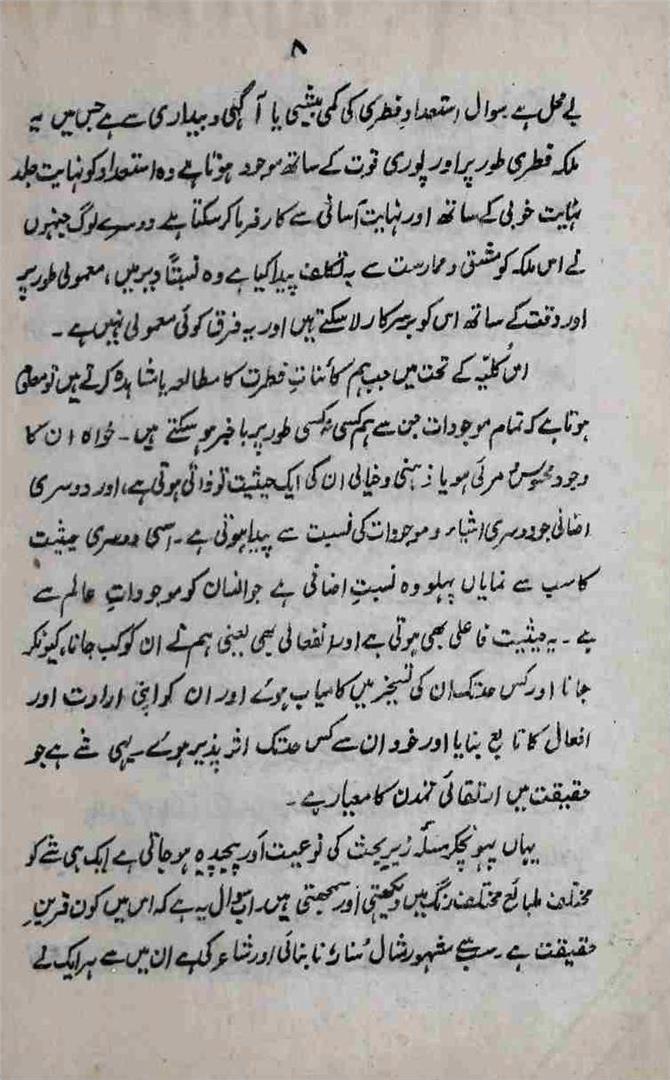 ۸
بے محل ہے سوال استعداد فطری کی کمی بیشی یا آگہی و بیداری سے ہے جس میں یہ
ملکہ فطری طور پر اور پوری قوت کے ساتھ موجود ہوتا ہے وہ استعداد کو نہایت جلد
نہایت خوبی کے ساتھ اور نہایت آسانی سے کارفرما کر سکتا ہے دوسرے لوگ جنہوں
نے اس ملکہ کو مشق و ممارست سے بہ تکلف پیدا کیا ہے وہ نسبتاً دیر میں، معمولی طور پر
اور دقت کے ساتھ اس کو برسرکار لا سکتے ہیں اور یہ فرق کوئی معمولی نہیں ہے۔
اس کلیّہ کے تحت میں جب ہم کائناتِ فطرت کا مطالعہ یا مشاہدہ کرتے ہیں تو معلوم
ہوتا ہے کہ تمام موجودات جن سے ہم کسی نہ کسی طور پر باخبر ہو سکتے ہیں۔ خواہ ان کا
وجود محسوس مرئی ہو یا ذہنی و خیالی ان کی ایک حیثیت تو ذاتی ہوتی ہے، اور دوسری
اضافی جو دوسری اشیاء و موجودات کی نسبت سے پیدا ہوتی ہے۔ اسی دوسری حیثیت
کا سب سے نمایاں پہلو وہ نسبتِ اضافی ہے جو انسان کو موجوداتِ عالم سے
ہے۔ یہ حیثیت فاعلی بھی ہوتی ہے اور انفعالی بھی یعنی ہم نے ان کو کب جانا، کیونکر
جانا اور کس حد تک ان کی تسخیر میں کامیاب ہوئے اور ان کو اپنی ارادت اور
افعال کا تابع بنایا اور خود ان سے کس حد تک اثر پذیر ہوئے۔ یہی شے ہے جو
حقیقت میں ارتقائی تمدن کا معیار ہے۔
یہاں پہونچکر مسئلہ زیر بحث کی نوعیت اور پیچیدہ ہو جاتی ہے ایک ہی شے کو
مختلف طبائع مختلف رنگ میں دیکھتی اور سمجھتی ہیں۔ اب سوال یہ ہے کہ اس میں کون قرینِ
حقیقت ہے۔ سب سے مشہور مثال سُنار نانبائی اور شاعر کی ہے ان میں سے ہر ایک نے